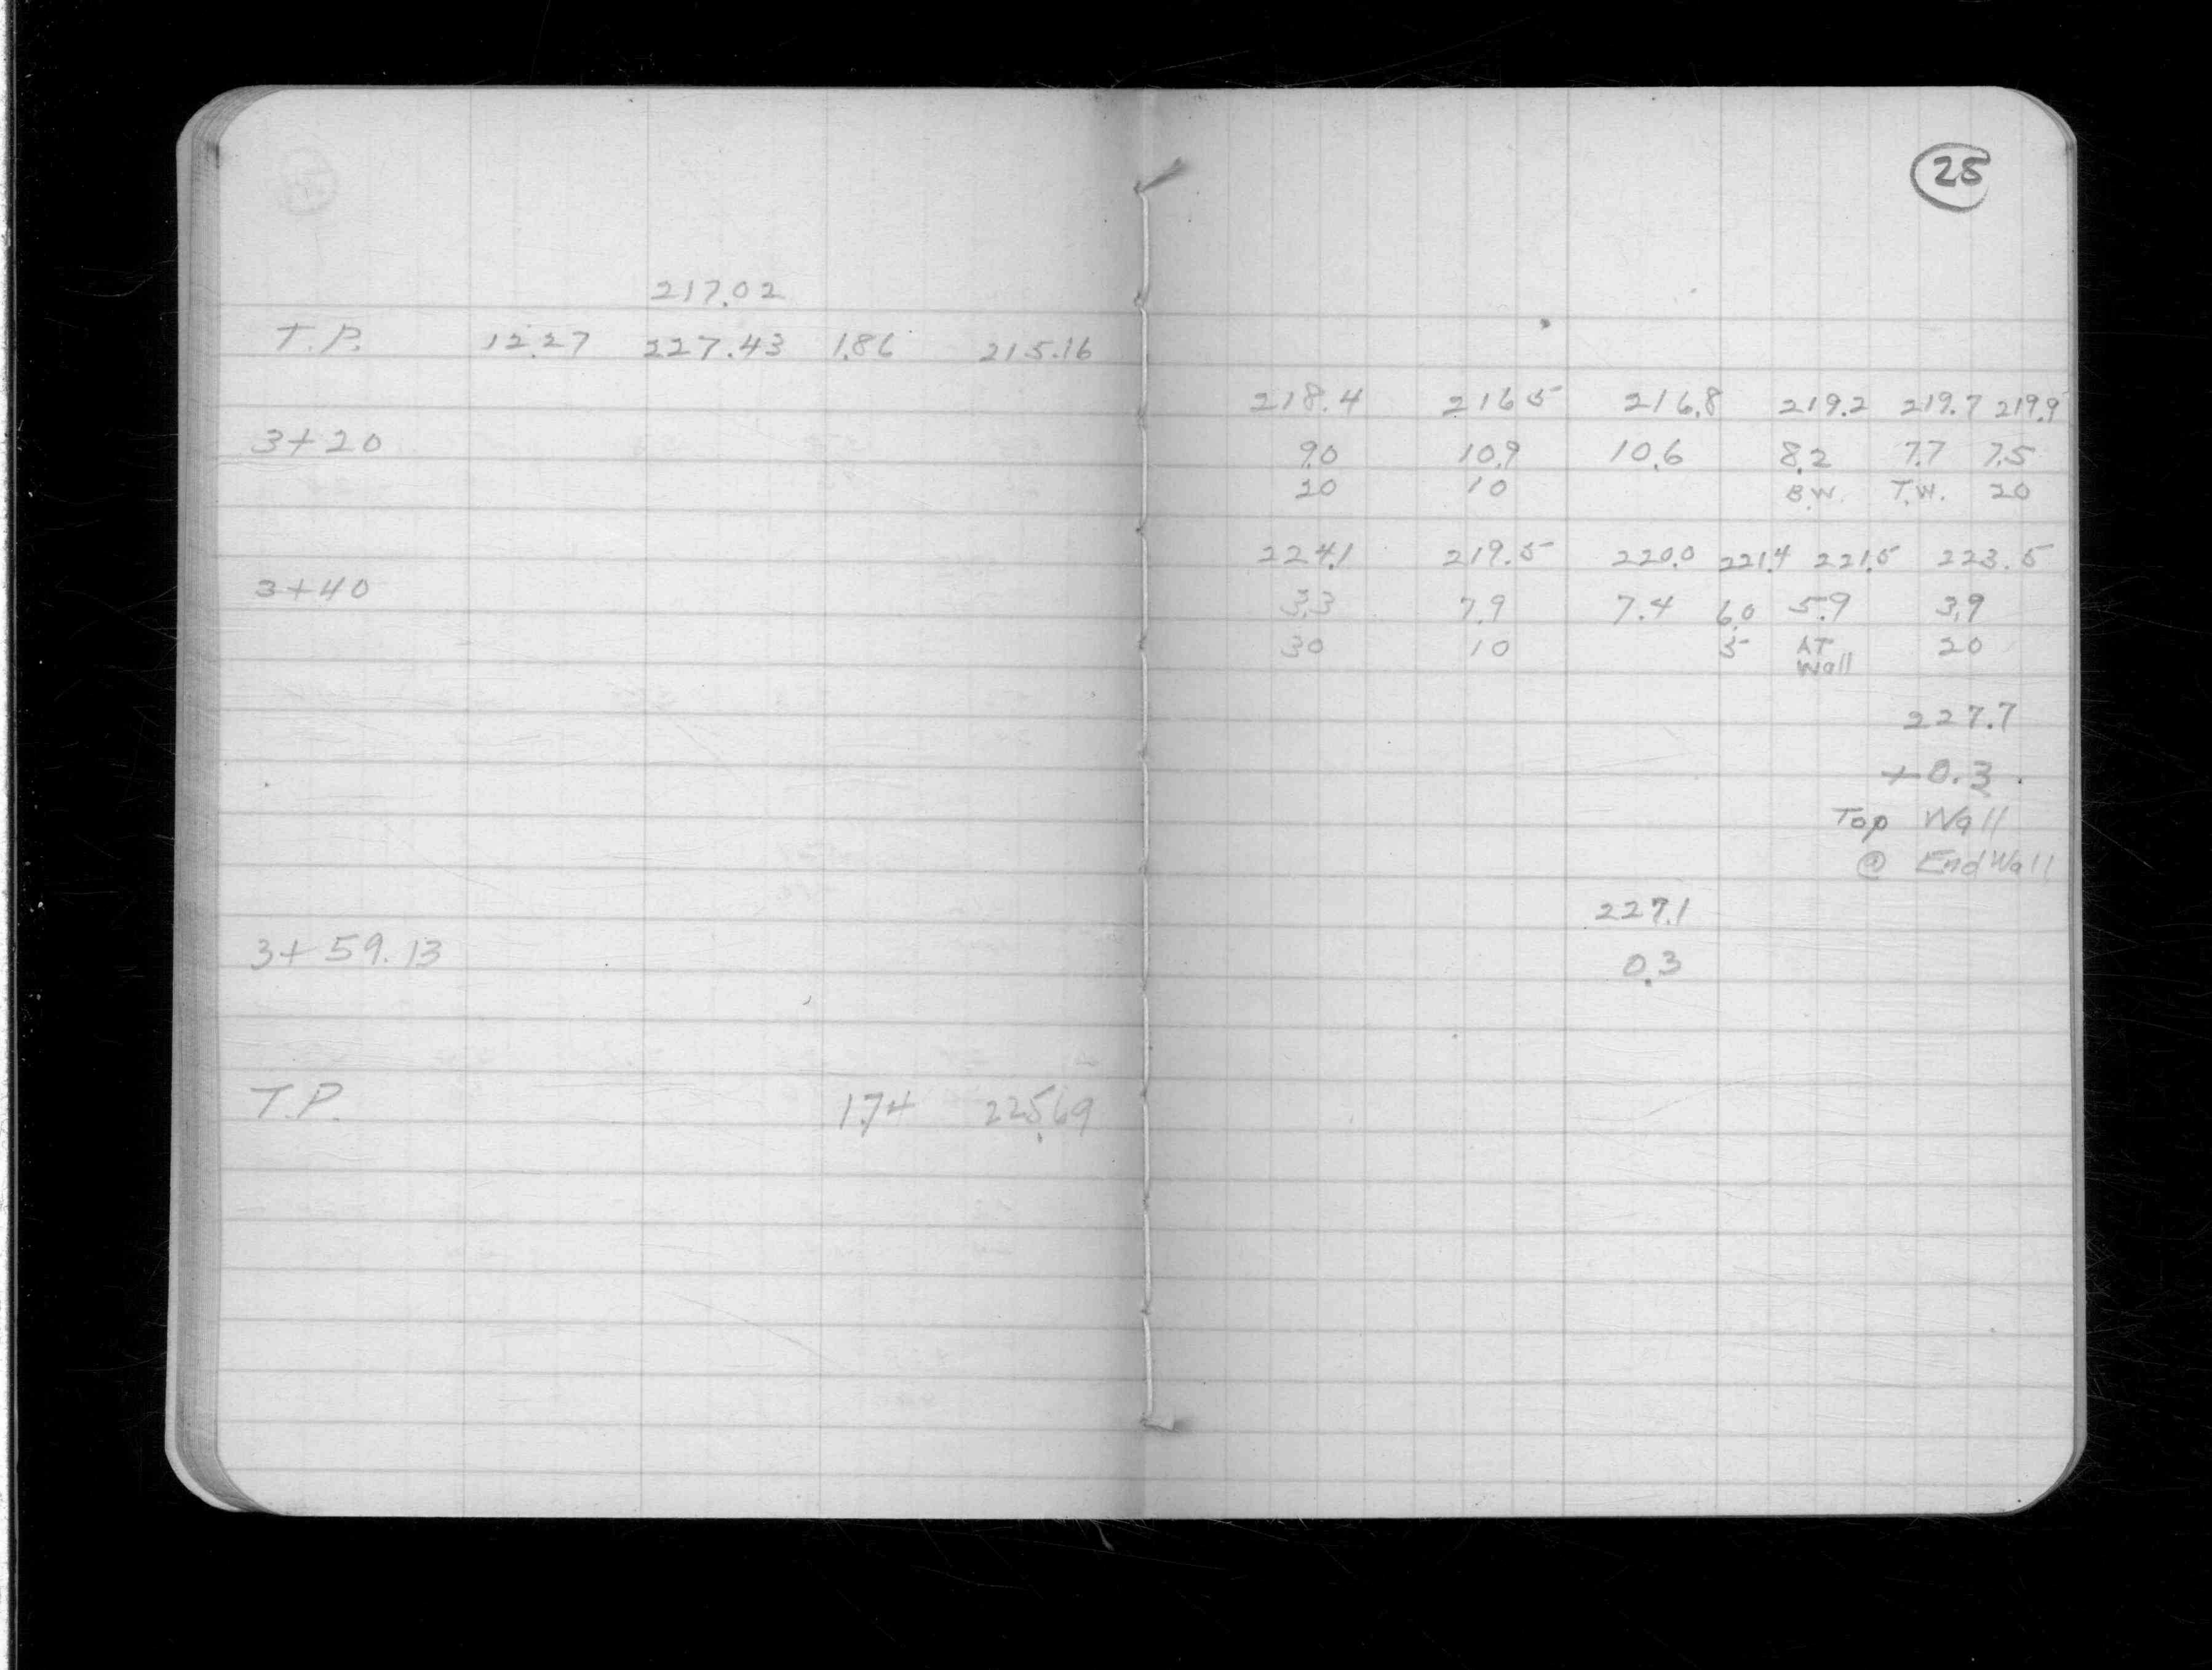 25
217.02
T.P. 12.27 227.43 1.86 215.16
218.4 216.5 216.8 219.2 219.7 219.9
3+20 9.0 10.9 10.6 8.2 7.7 7.5
20 10 B.W. T.W. 20
224.1 219.5 220.0 221.4 221.5 223.5
3+40 3.3 7.9 7.4 6.0 5.9 3.9
30 10 5 AT Wall 20
227.7
+0.3
Top Wall
@ End Wall
227.1
3+59.13 0.3
T.P. 1.74 225.69